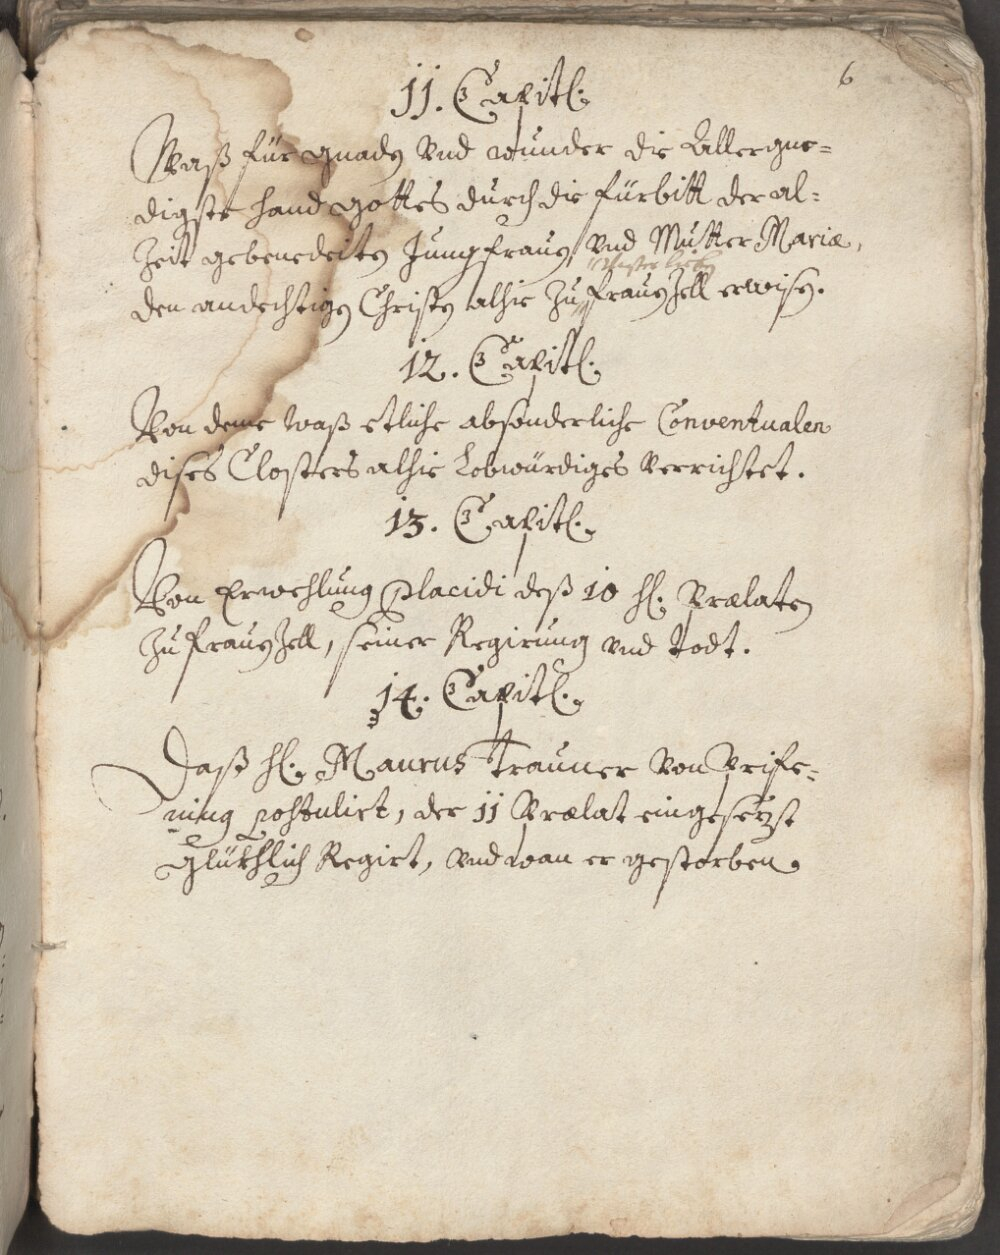 6
11. Capitl.
Waß für gnaden vnd wunder die Allergne=
digste hand gottes durch die fürbitt der al=
Zeit gebenedeiten Jungfrauen, vnd Mutter Mariæ,
den andechtigen Christen alhie Zu frauenZell erwisen.
12. Capitl.
Von deme waß etliche absonderliche Conventualen
dises Closters alhie Lobwürdiges verrichtet.
13. Capitl.
Von Erwehlung Placidi deß 10 hl. Prælaten
Zu frauenZell, seiner Regirung vnd todt.
14. Capitl.
Daß hl. Maurus Trauner von Prife=
ning postulirt, der 11 Prælat eingesetzt
glükhlich Regirt, vnd wan er gestorben.